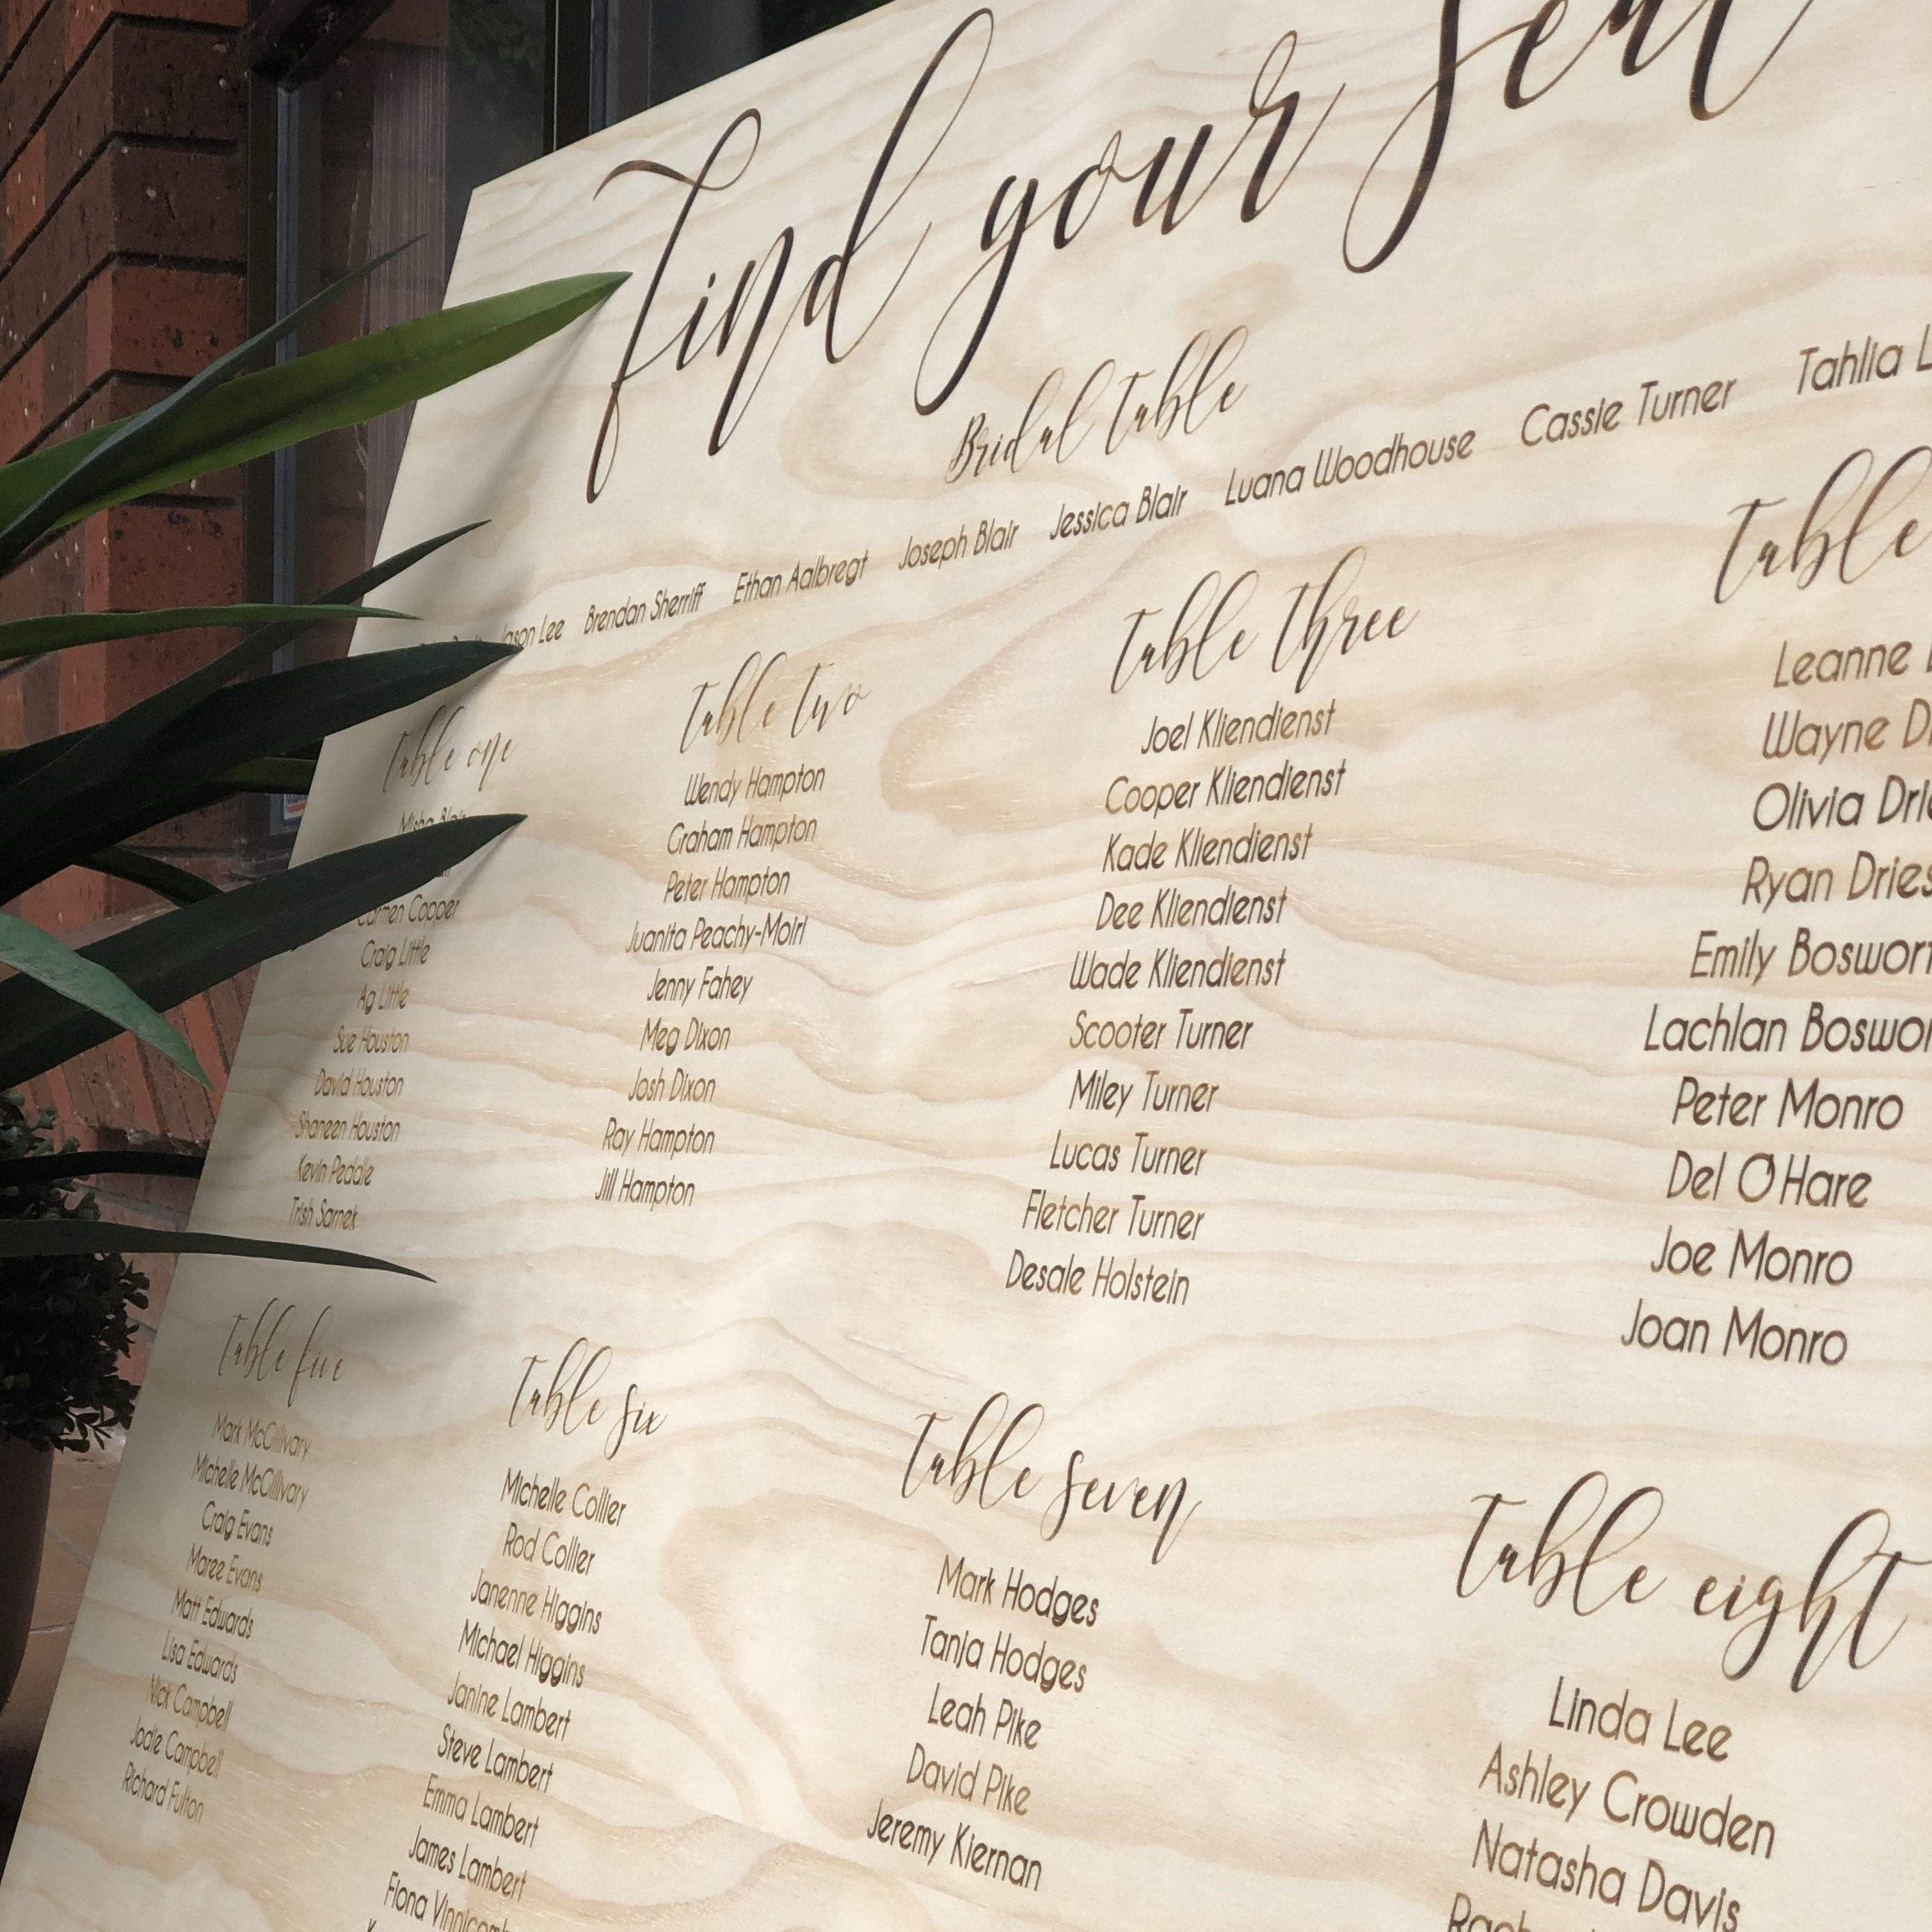 find your seat
Bridal Table
Jason Lee Brendan Sherriff Ethan Aalbregt Joseph Blair Jessica Blair Luana Woodhouse Cassie Turner Tahlia
Table one
Misha Blair
Carmen Cooper
Craig Little
Ag Little
Sue Houston
David Houston
Shaneen Houston
Kevin Peddle
Trish Sarnek
Table two
Wendy Hampton
Graham Hampton
Peter Hampton
Juanita Peachy-Moirl
Jenny Fahey
Meg Dixon
Josh Dixon
Ray Hampton
Jill Hampton
Table three
Joel Kliendienst
Cooper Kliendienst
Kade Kliendienst
Dee Kliendienst
Wade Kliendienst
Scooter Turner
Miley Turner
Lucas Turner
Fletcher Turner
Desale Holstein
Table
Leanne
Wayne
Olivia
Ryan
Emily
Lachlan
Peter Monro
Del O'Hare
Joe Monro
Joan Monro
Table five
Mark McGillivary
Michelle McGillivary
Craig Evans
Maree Evans
Matt Edwards
Lisa Edwards
Nick Campbell
Jodie Campbell
Richard Fulton
Table six
Michelle Collier
Rod Collier
Janenne Higgins
Michael Higgins
Janine Lambert
Steve Lambert
Emma Lambert
James Lambert
Fiona
Table seven
Mark Hodges
Tanja Hodges
Leah Pike
David Pike
Jeremy Kiernan
Table eight
Linda Lee
Ashley Crowden
Natasha Davis